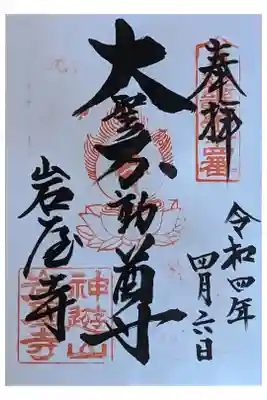 奉拝
令和四年
四月六日
大聖不動尊
岩屋寺
神遊山